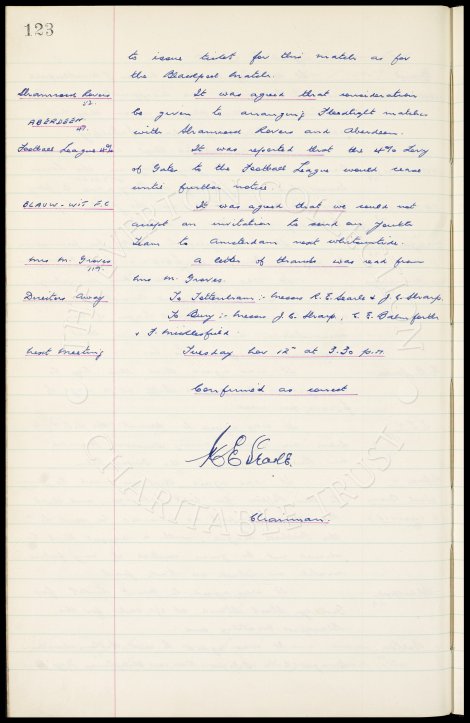 123
to issue ticket for this match as for
the Blackpool match.
Shamrock Rovers
It was agreed that consideration
be given to arranging Floodlight matches
ABERDEEN
with Shamrock Rovers and Aberdeen.
Football League 4%
It was reported that the 4% Levy
of Gates to the Football League would cease
until further notice.
BLAUW-WIT F.C
It was agreed that we could not
accept an invitation to send our youth
team to Amsterdam next Whitsuntide.
Mrs M. Groves
A letter of thanks was read from
Mrs M. Groves.
Directors Away
To Tottenham :- Messrs R.E. Searle & J.C. Sharp.
To Bury :- Messrs J.C. Sharp, C.E. Balmforth
& F. Micklesfield.
Next Meeting
Tuesday Nov 12th at 3.30 p.m.
Confirmed as correct
R E Searle.
Chairman.
CHARITABLE TRUST